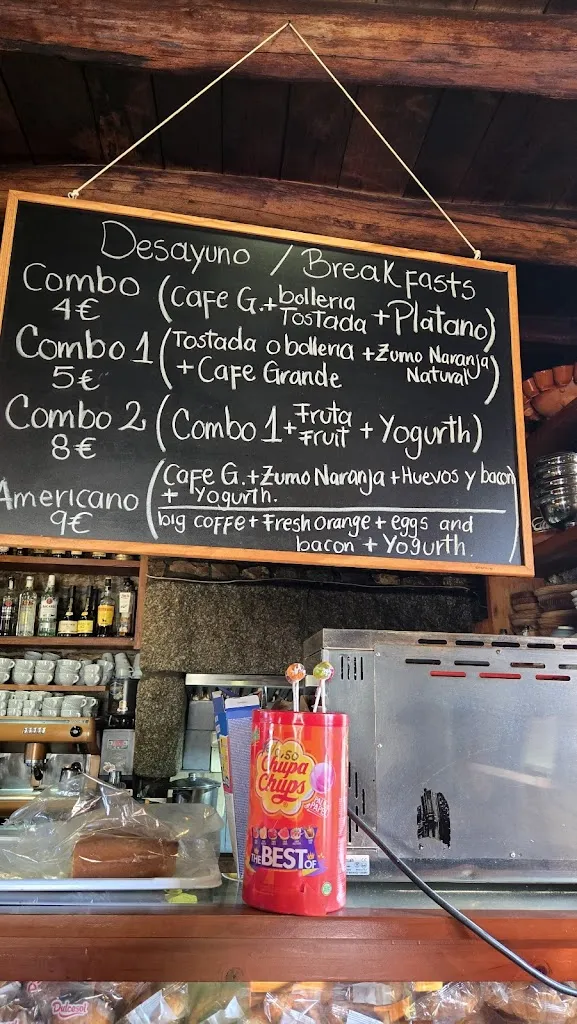 Desayuno / Breakfasts
Combo (Cafe G.+ bolleria
Tostada + Platano)
4€
Combo 1 (Tostada o bolleria + Zumo Naranja
Natural)
+ Cafe Grande
5€
Combo 2 (Combo 1 + Fruta
Fruit + Yogurth)
8€
Americano (Cafe G. + Zumo Naranja + Huevos y bacon
+ Yogurth.
9€
big coffe + Fresh orange + eggs and
bacon + Yogurth.)
Chupa
Chups
THE BEST OF
Dulcesol